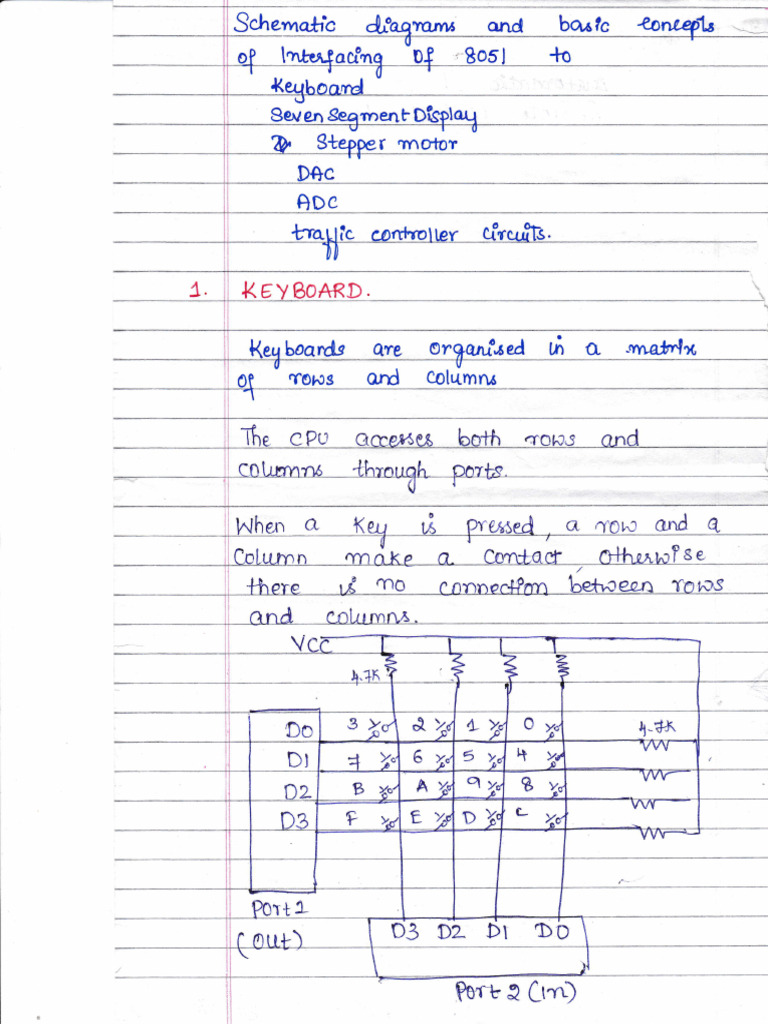 Schematic diagrams and basic concepts
of Interfacing Of 8051 to
Keyboard
Seven Segment Display
Stepper motor
DAC
ADC
traffic controller circuits.
1. KEYBOARD.
Keyboards are organised in a matrix
of rows and columns
The CPU accesses both rows and
columns through ports.
When a key is pressed, a row and a
Column make a contact, otherwise
there is no connection between rows
and columns.
VCC
4.7K
D0 3 2 1 0 4.7K
D1 7 6 5 4
D2 B A 9 8
D3 F E D C
Port 1
(Out)
D3 D2 D1 D0
Port 2 (In)